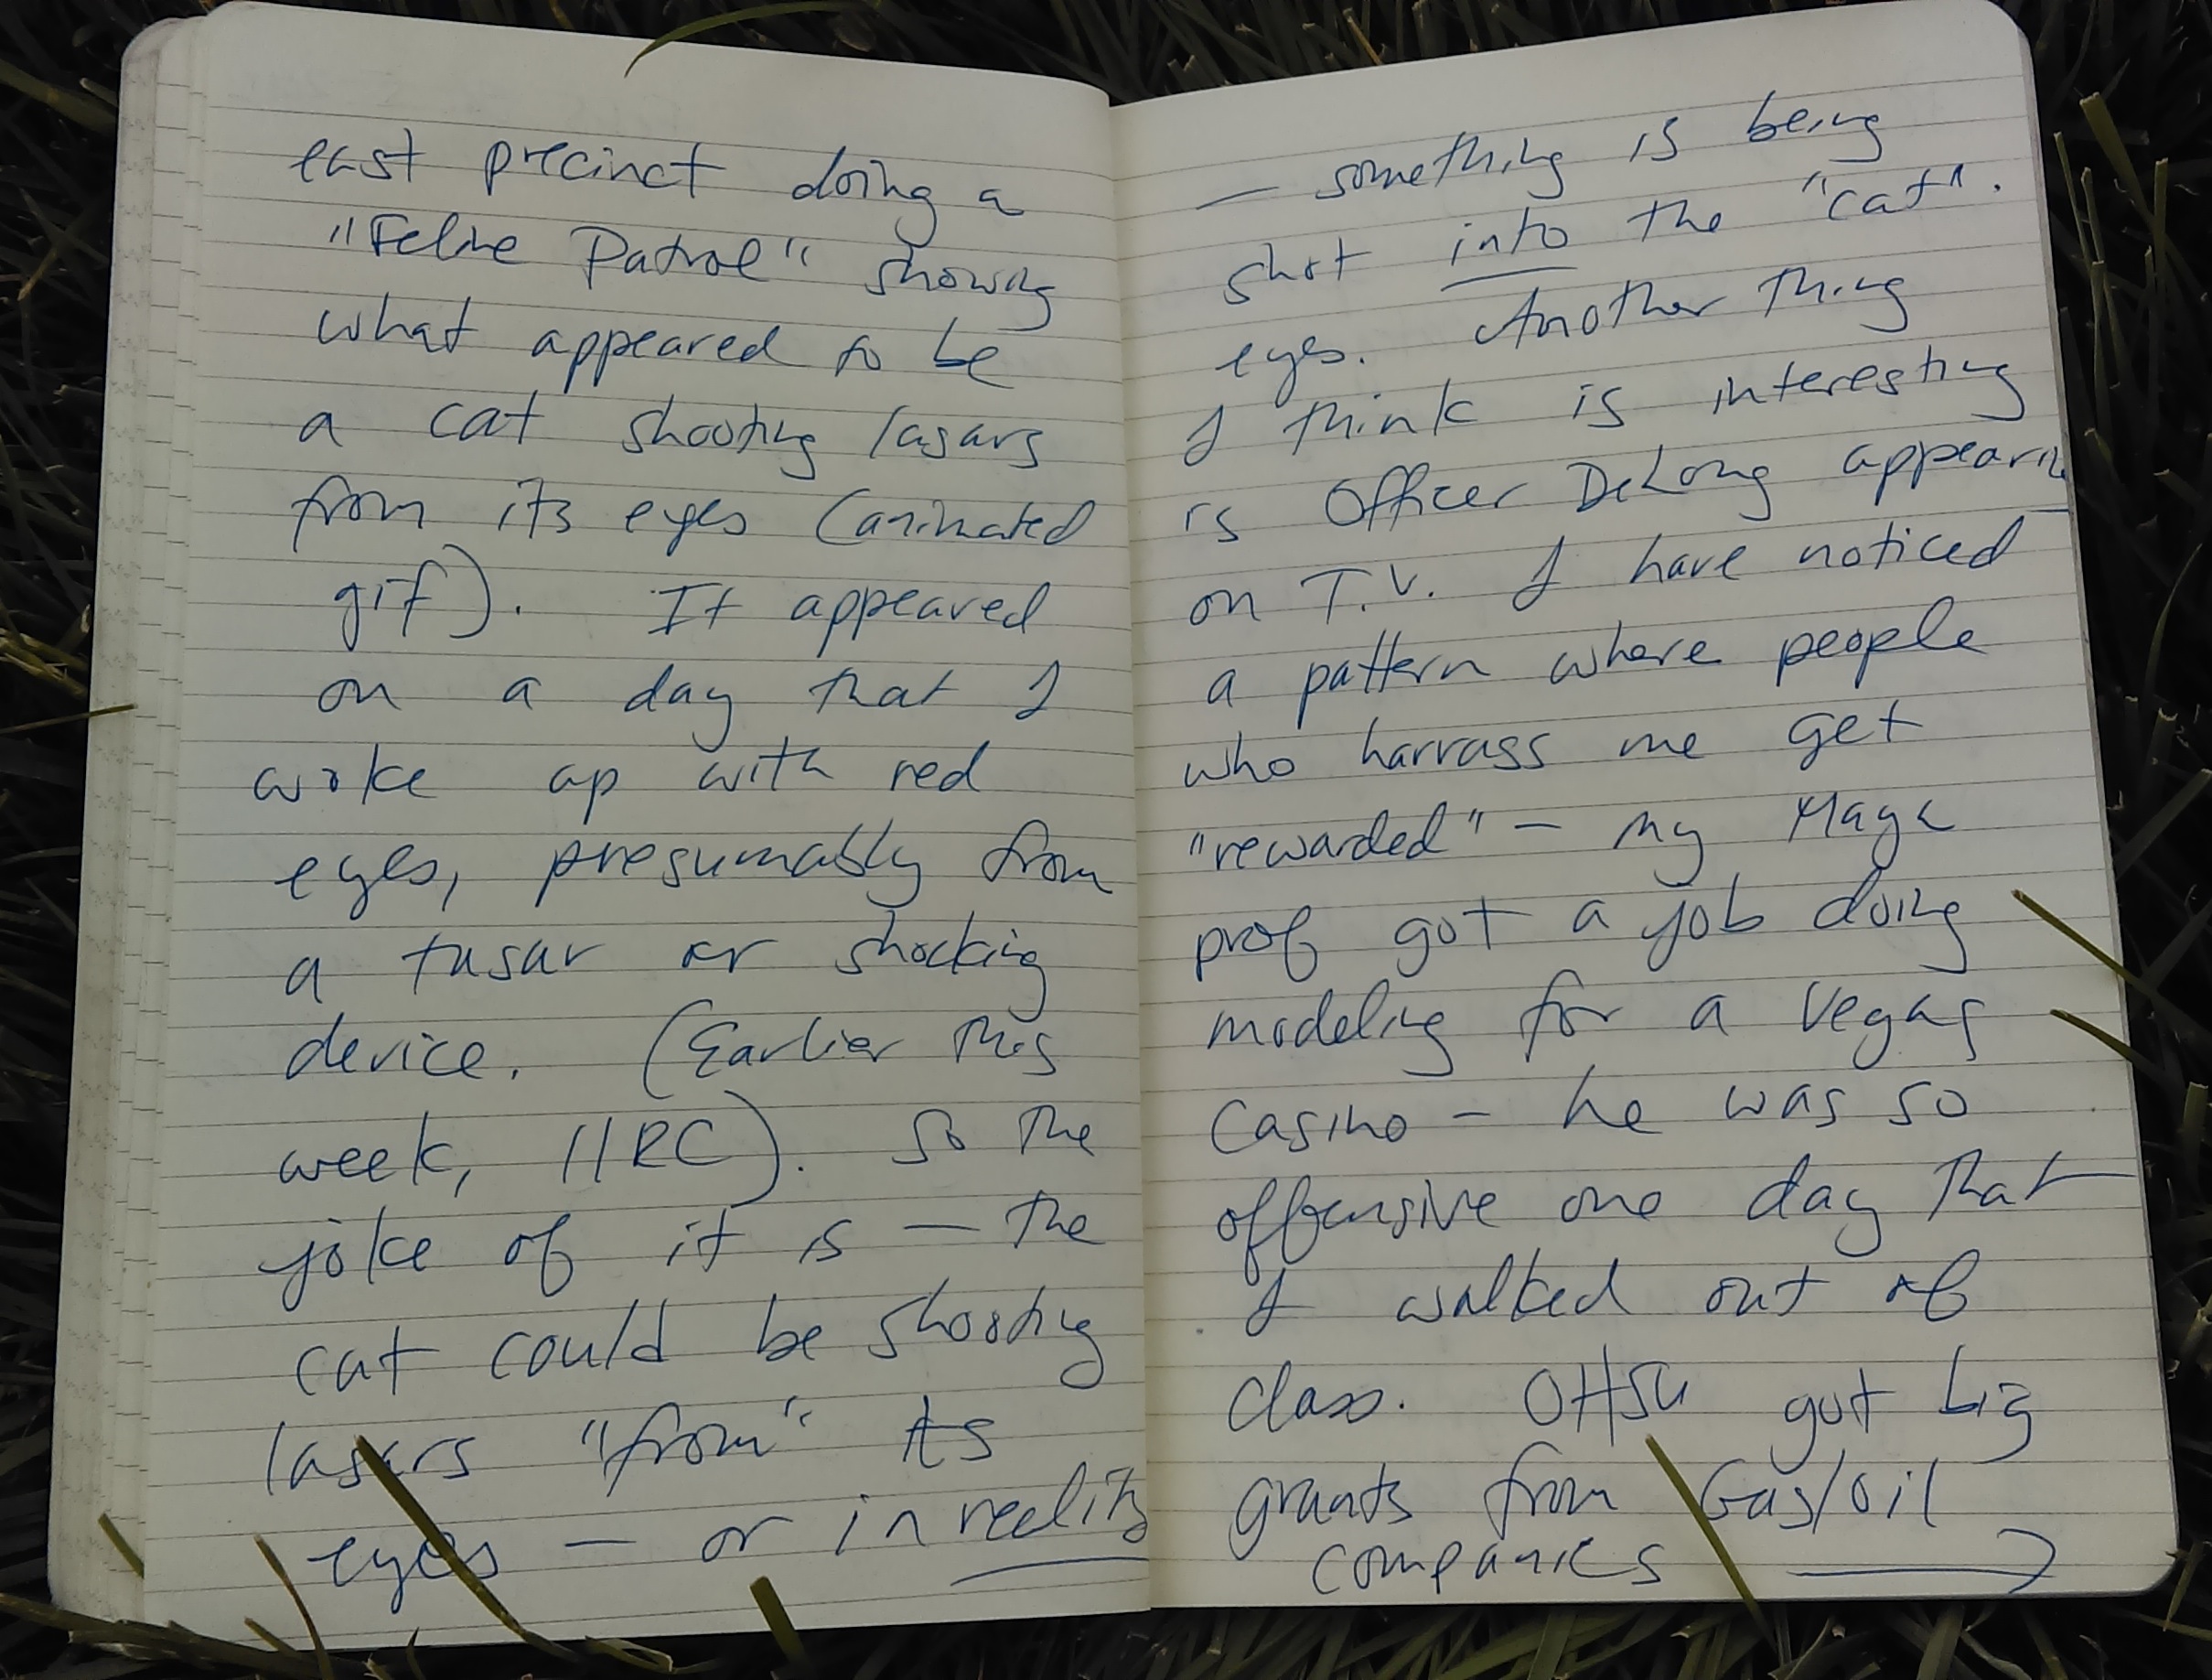 east precinct doing a
"Feline Patrol" showing
what appeared to be
a cat shooting lasars
from its eyes (animated
gif). It appeared
on a day that I
woke up with red
eyes, presumably from
a tasar or shocking
device. (Earlier this
week, IIRC). So the
joke of it is — the
cat could be shooting
lasars "from" its
eyes — or in reality
— something is being
shot into the "cat".
eyes. Another thing
I think is interesting
is Officer DeLong appearing
on T.V. I have noticed
a pattern where people
who harrass me get
"rewarded" — my Maya
prof got a job doing
modeling for a Vegas
Casino — he was so
offensive one day that
I walked out of
class. OHSU got big
grants from Gas/Oil
companies →